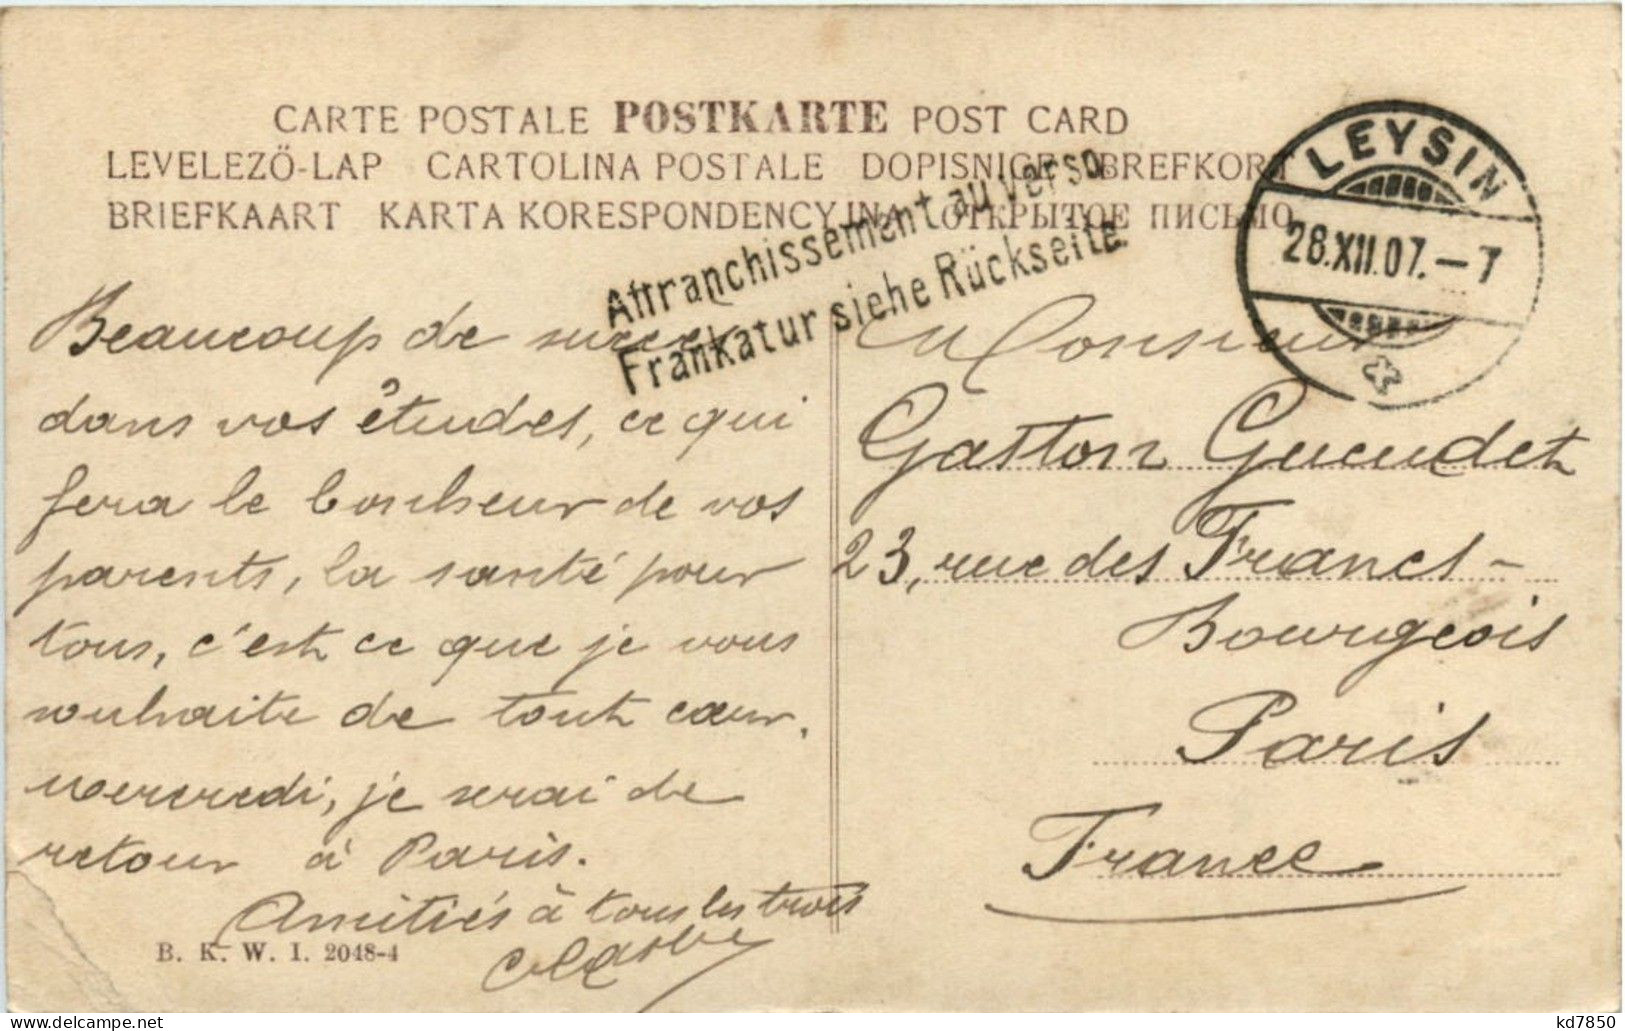 CARTE POSTALE POSTKARTE POST CARD
LEVELEZŐ-LAP CARTOLINA POSTALE DOPISNICE BREFKORT
BRIEFKAART KARTA KORESPONDENCYJNA ОТКРЫТОЕ ПИСЬМО
Affranchissement au verso
Frankatur siehe Rückseite
LEYSIN
28.XII.07.–7
Beaucoup de succès
dans vos études, ce qui
fera le bonheur de vos
parents, la santé pour
tous, c'est ce que je vous
souhaite de tout cœur.
Mercredi, je serai de
retour à Paris.
Amitiés à tous les trois
B. K. W. I. 2048-4
Monsieur
Gaston Gueudet
23, rue des Francs-
Bourgeois
Paris
France
kd7850